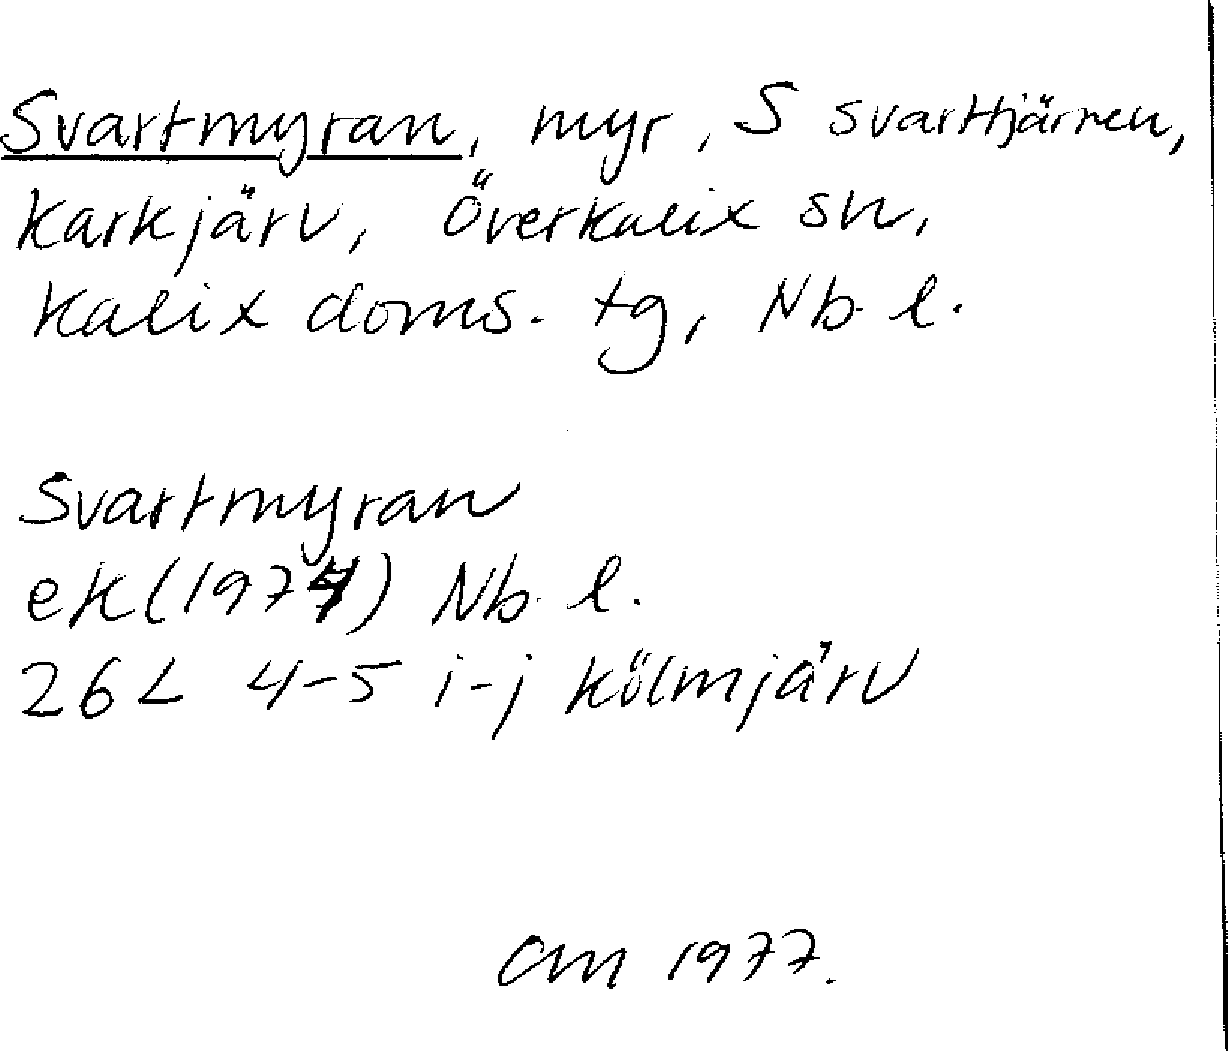 Svartmyran, myr, S Svarttjärnen,
Karkjärv, Överkalix sn,
Kalix doms. tg, Nb. l.
Svartmyran
ek(1974) Nb. l.
26L 4-5 i-j Kölmjärv
CM 1977.